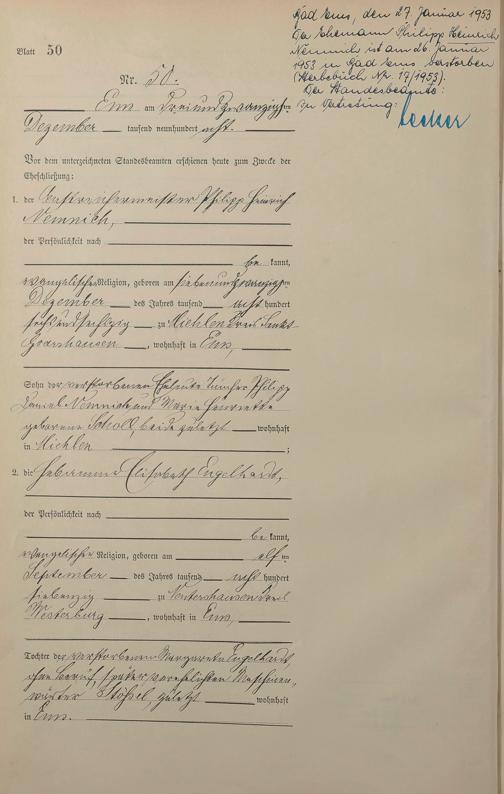 Bad Ems, den 27. Januar 1953
Der Ehemann Philipp Heinrich
Nemnich ist am 26. Januar
1953 in Bad Ems verstorben
(Sterbebuch Nr. 17/1953).
Der Standesbeamte:
In Vertretung:
Blatt 50
Nr. 50.
Ems am dreiundzwanzigsten
Dezember tausend neunhundert acht.
Vor dem unterzeichneten Standesbeamten erschienen heute zum Zwecke der
Eheschließung:
1. der Philipp Heinrich
Nemnich,
der Persönlichkeit nach
be kannt,
evangelischer Religion, geboren am siebenundzwanzigsten
Dezember des Jahres tausend acht hundert
sechsundsechzig zu Miehlen Kreis Sankt-
Goarshausen, wohnhaft in Ems,
Sohn der verstorbenen Eheleute Tüncher Philipp
Daniel Nemnich und Marie Henriette
geborene Scholl, beide zuletzt wohnhaft
in Miehlen ;
2. die Hebamme Elisabeth Engelhardt,
der Persönlichkeit nach
be kannt,
evangelischer Religion, geboren am elf ten
September des Jahres tausend acht hundert
siebenzig zu Kreis
Westerburg, wohnhaft in Ems,
Tochter der verstorbenen Margarete Engelhardt,
ohne Beruf, später verehelichten Maschinen-
wärter Stößel, zuletzt wohnhaft
in Ems.